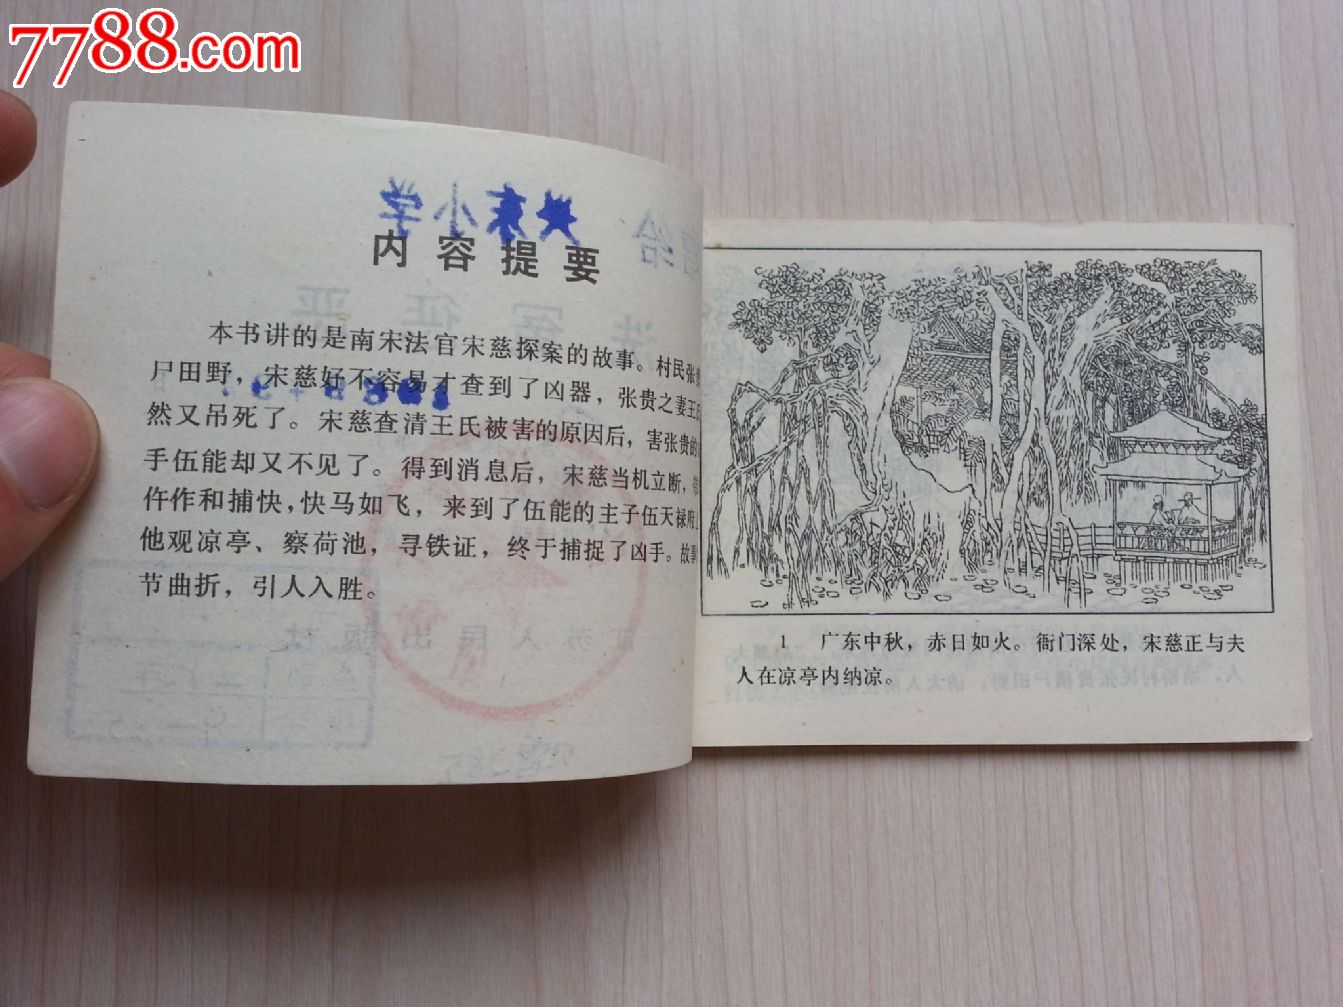 7788.com
兴东小学
给
内容提要
本书讲的是南宋法官宋慈探案的故事。村民张贵
尸田野，宋慈好不容易才查到了凶器，张贵之妻王氏
然又吊死了。宋慈查清王氏被害的原因后，害张贵的
手伍能却又不见了。得到消息后，宋慈当机立断，带
仵作和捕快，快马如飞，来到了伍能的主子伍天禄府上
他观凉亭、察荷池，寻铁证，终于捕捉了凶手。故事
节曲折，引人入胜。
江苏人民出版社
1 广东中秋，赤日如火。衙门深处，宋慈正与夫
人在凉亭内纳凉。